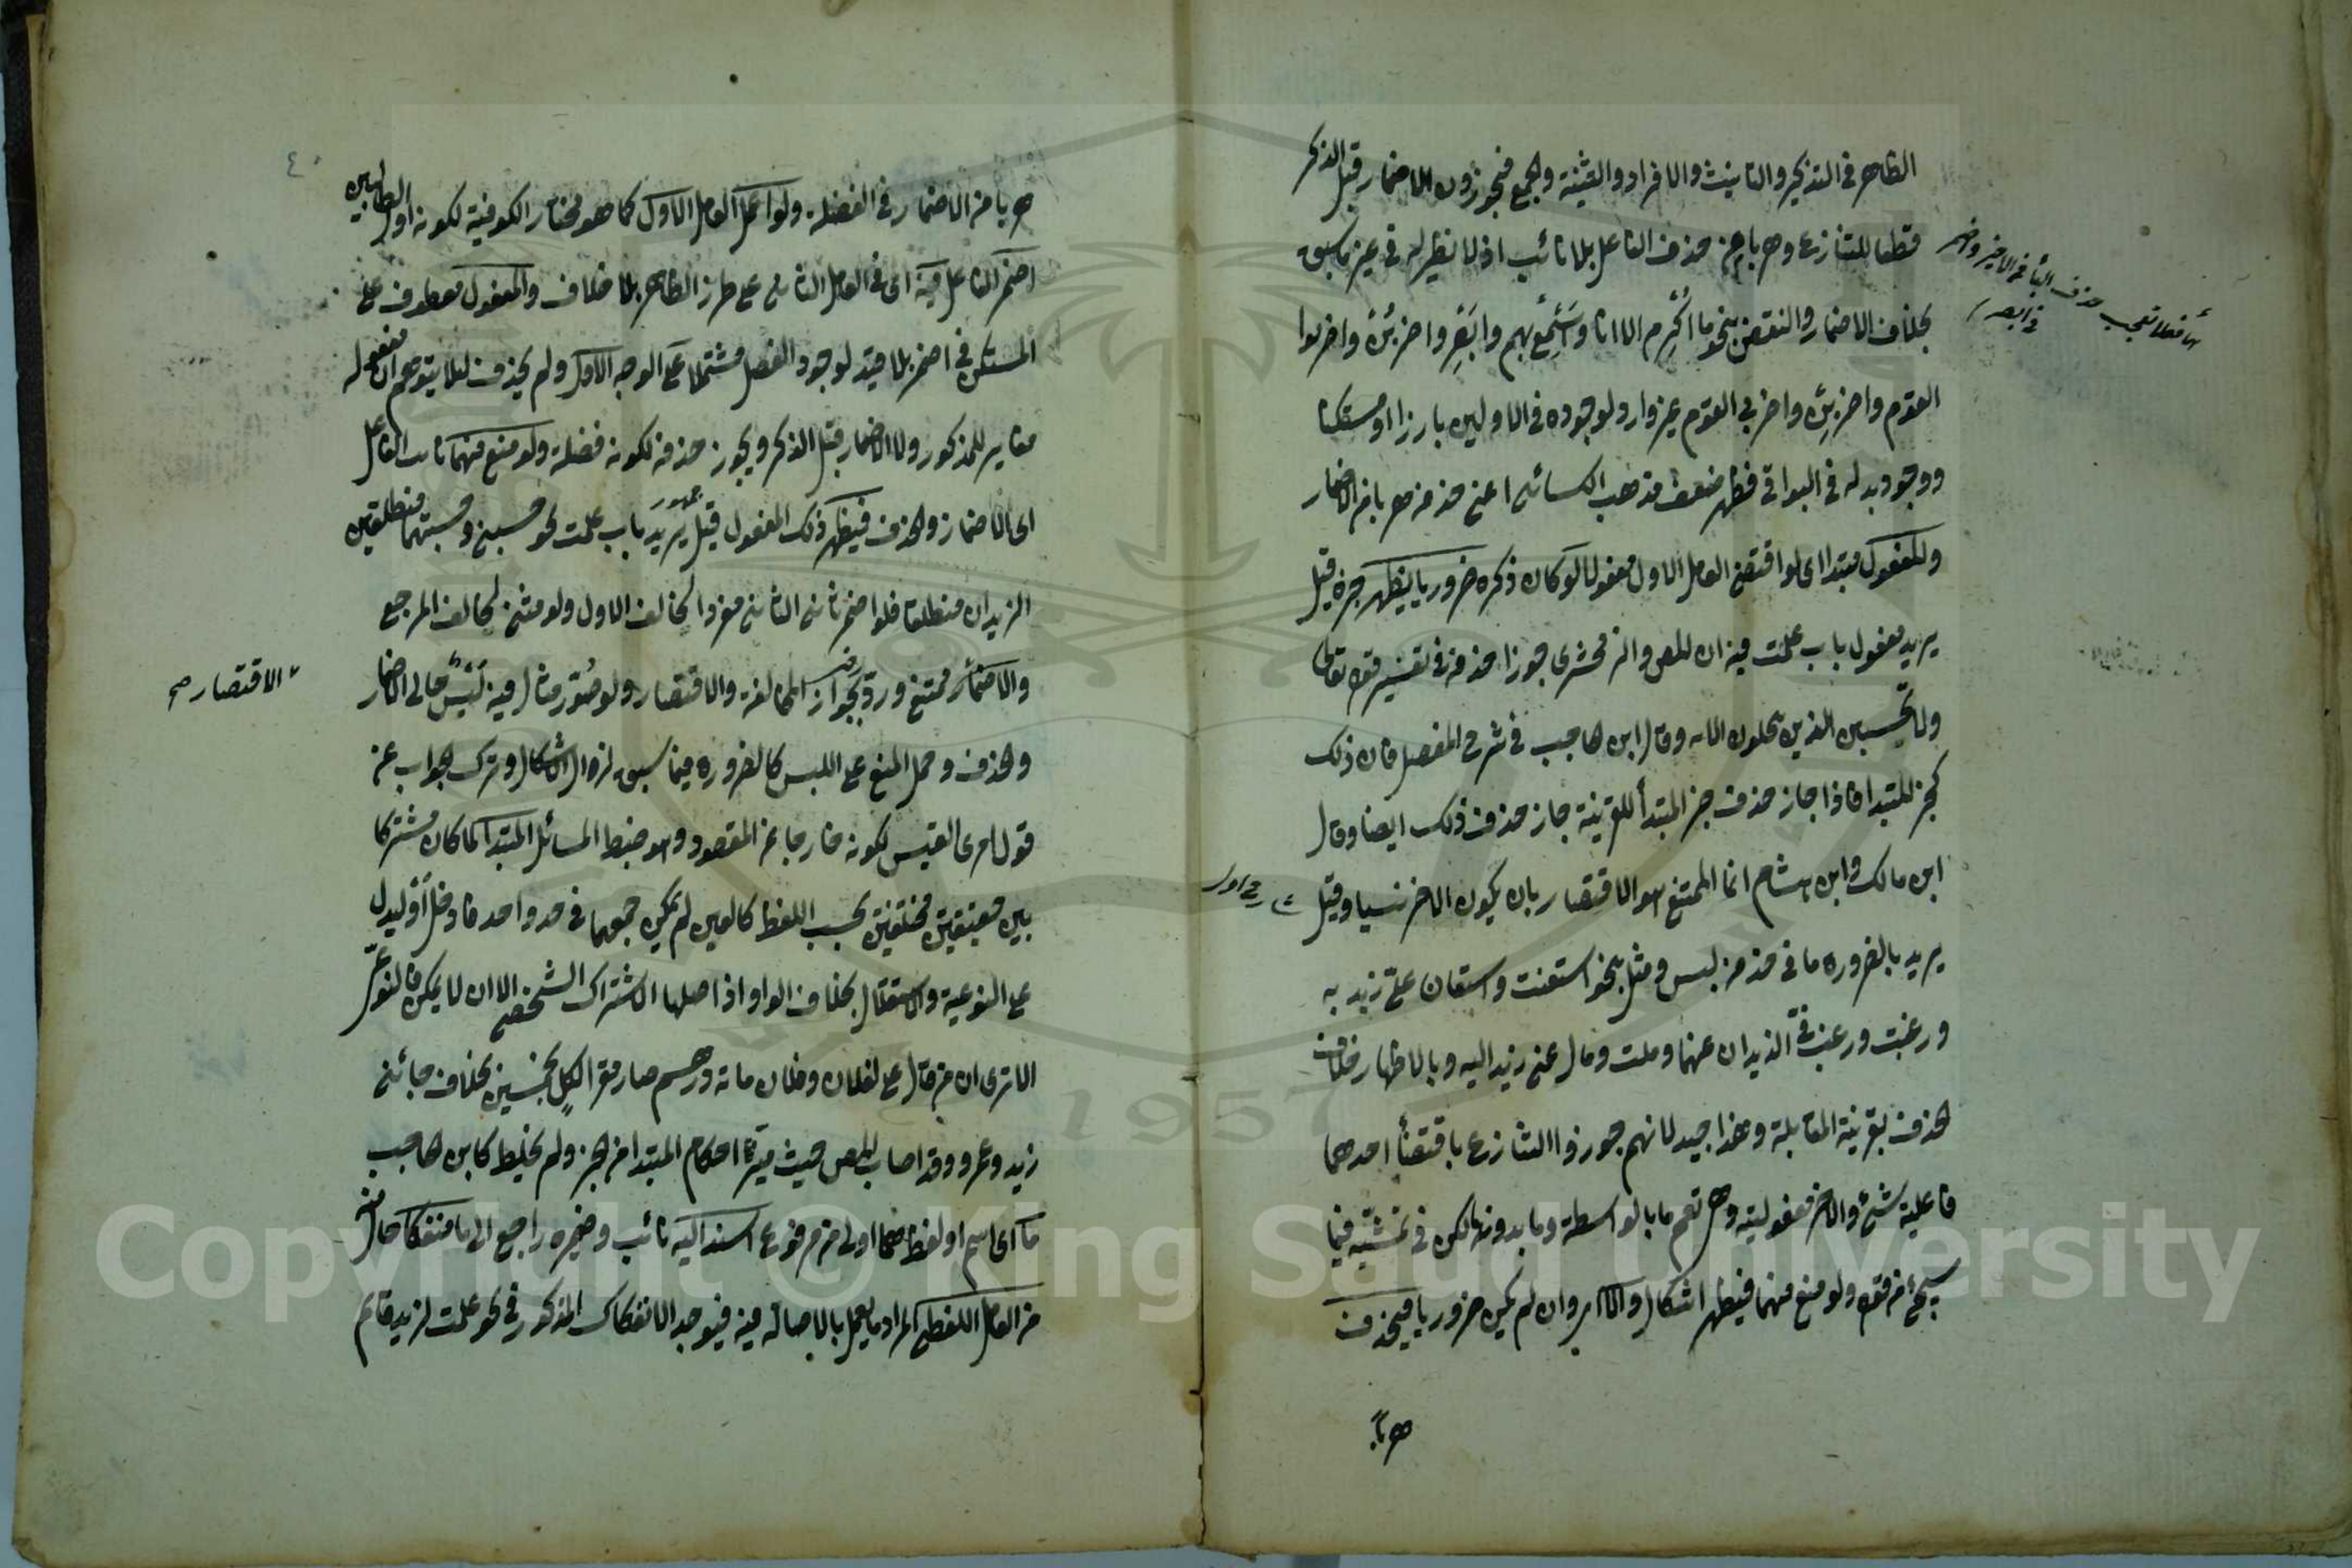 الظاهر فى التذكير والتانيث والافراد والتثنية والجمع فيجوزون الاضمار قبل الذكر
قطعا للتنازع وهربا عن حذف الفاعل بلا نائب اذ لا نظير له فى غير ما سبق
بخلاف الاضمار والنقض بنحو ما اكرم الا انا واسمع بهم وابصر واضربن واضربوا
القوم واضربن واضربى القوم غير وارد لوجوده فى الاولين بارزا او مستكنا
ووجود بدله فى البواقى فظهر ضعف مذهب الكسائى اعنى حذفه هربا من الاضمار
والمفعول مبتدا اى لو اقتضى العامل الاول مفعولا لو كان ذكره ضروريا ليظهر خبره قيل
يريد مفعول باب علمت فيه ان المص والزمخشرى جوزا حذفه فى تفسير قوله تعالى
ولا تحسبن الذين يبخلون الاية وقال ابن حاجب فى شرح المفصل فان ذلك
كخبر المبتدا فاذا جاز حذف خبر المبتدأ للقرينة جاز حذف ذلك ايضا وقال
ابن مالك وابن هشام انما الممتنع هو الاقتصار بان يكون الاخر نسيا وقيل
يريد بالضرورة ما فى حذفه لبس ومثل بنحو استعنت واستعان على زيد به
ورغبت ورغب فى الزيدان عنهما وملت ومال عنى زيد اليه وبالاظهار
الحذف بقرينة المقابلة وهذا جيد لانهم جوزوا التنازع باقتضأ احدهما
فاعلية شئ والاخر مفعوليته وهى تعم ما بالواسطة وما بدونها لكن فى تمشيته فيما
سيجئ من قوله ولو منع منهما فيظهر اشكال والا اى وان لم يكن ضروريا فيحذف
هربا
فى ابصر
هربا من الاضمار فى الفضلة ولو اعمل العامل الاول كما هو مختار الكوفية لكونه اول الطالبين
اضمر الفاعل فيه اى فى العامل الثانى على طرز الظاهر بلا خلاف والمفعول معطوف على
المستكن فى اضمر بلا قيد لوجود الفصل مشتملا على الوجه الاول ولم يحذف لئلا يتوهم ان مفعوله
مغاير للمذكور ولا الاضمار قبل الذكر ويجوز حذفه لكونه فضلة ولو منع منهما نائب الفاعل
اى الاضمار والحذف فيظهر ذلك المفعول قيل يريد باب علمت نحو حسبنى وحسبتهما منطلقين
الزيدان منطلقا فلو اضمر ثانى الثانى مفردا لخالف الاول ولو مثنى لخالف المرجع
والاضمار ممتنع ورد بجواز المخالفة والاقتصار ولو صور مثال فيه لبس حالى الاضمار
والحذف وحمل المنع على اللبس كالضرورة فيما سبق لزال الاشكال وترك الجواب عن
قول امرئ القيس لكونه خارجا عن المقصود وهو ضبط المسائل المبتدا لما كان مشتركا
بين حقيقتين مختلفتين بحسب اللفظ كالعين لم يمكن جمعهما فى حد واحد فادخل او ليدل
على النوعية والاستقلال بخلاف الواو اذ اصلها الاشتراك الشخصى الا ان لا يمكن
الا ترى ان من قال على لفلان وفلان مائة ودرهم صار مقرا لكل بجنسين بخلاف جائنى
زيد وعمرو وقد اصاب المص حيث ميز احكام المبتدا من الخبر ولم يخلط كابن حاجب
ما اى اسم او لفظ اولى من مرفوع اسند اليه نائب وضميره راجع الى ما منفكا حال منه
من العامل اللفظى المراد ما يعمل بالاصالة فيه فيوجد الانفكاك المذكور فى نحو علمت لزيد قائم
الاقتصار صح